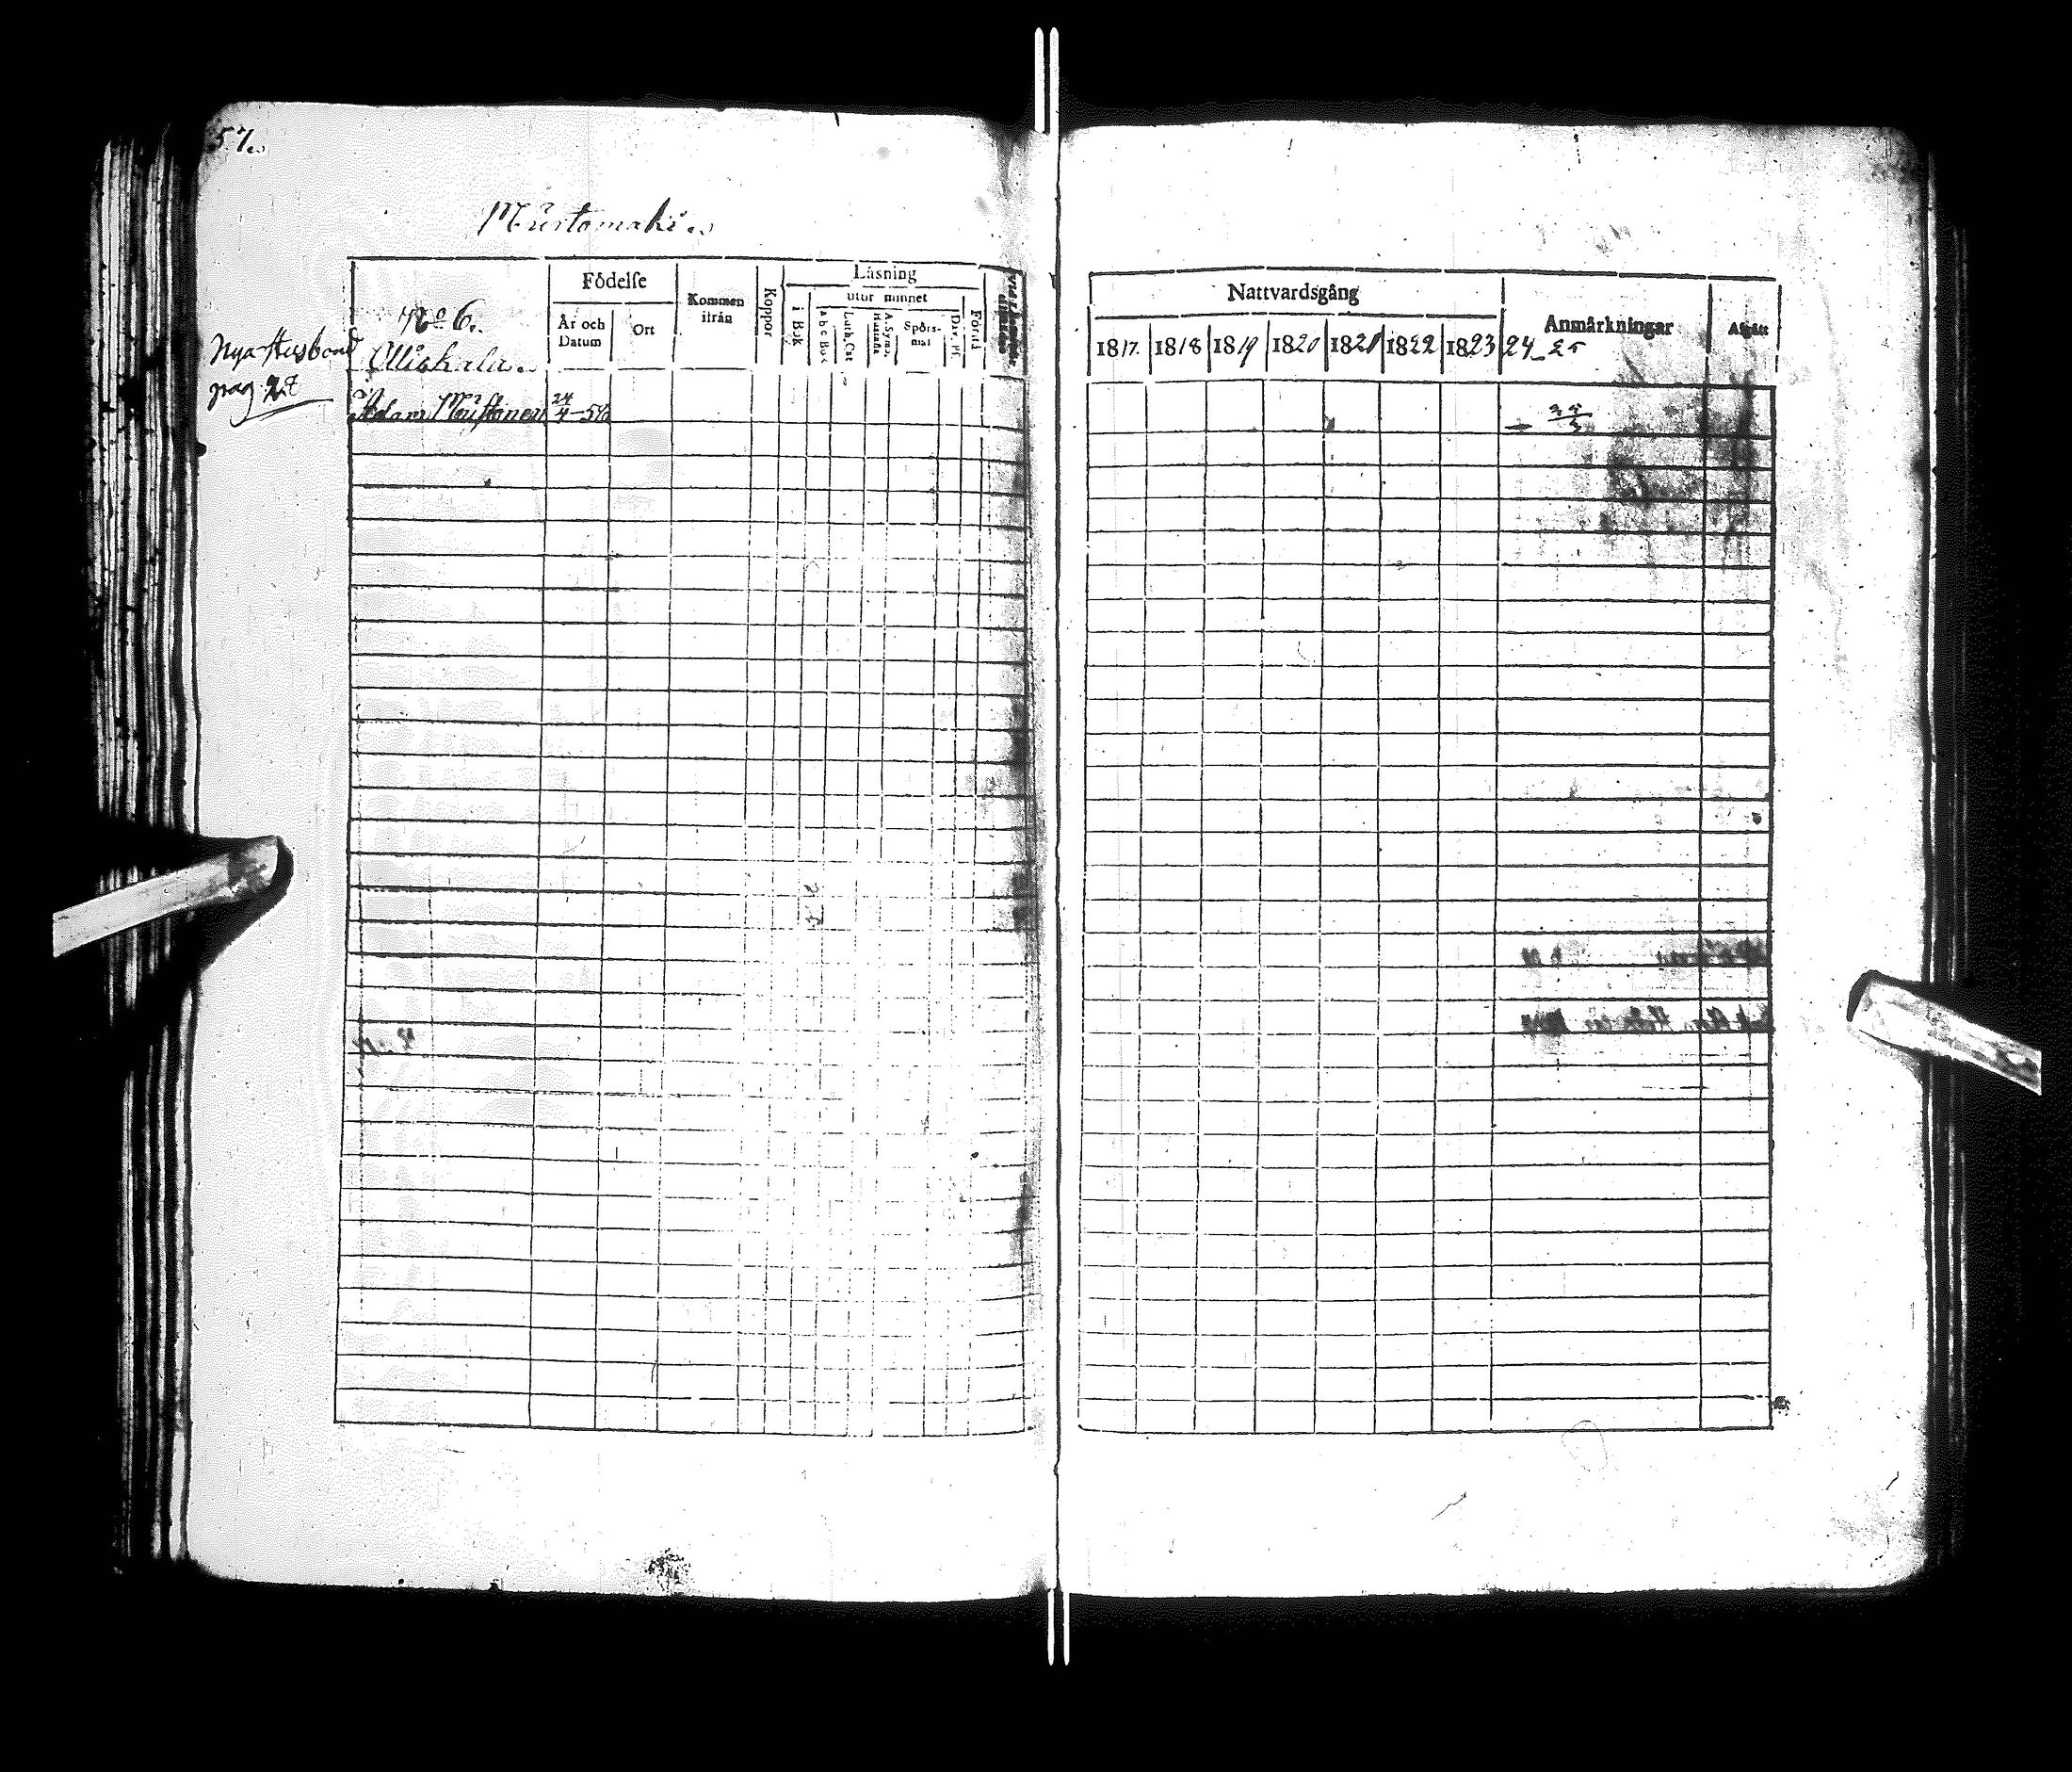 57.
Mustomäki.
Födelse
Läsning
Nattvardsgång
No 6.
Kommen ifrån
Koppor
utur minnet
Anmärkningar
Afgått
År och Datum
Ort
i Bok
abc Bok
Luth. Cat
A. Symb. Hustafla
Spörsmål
Dav. Ps.
Förstånd
1817. 1818 1819 1820 1821 1822 1823 24 25
Nya Husbond
pag 28
Ollickala.
Adam Mustonen 24/4 - 54